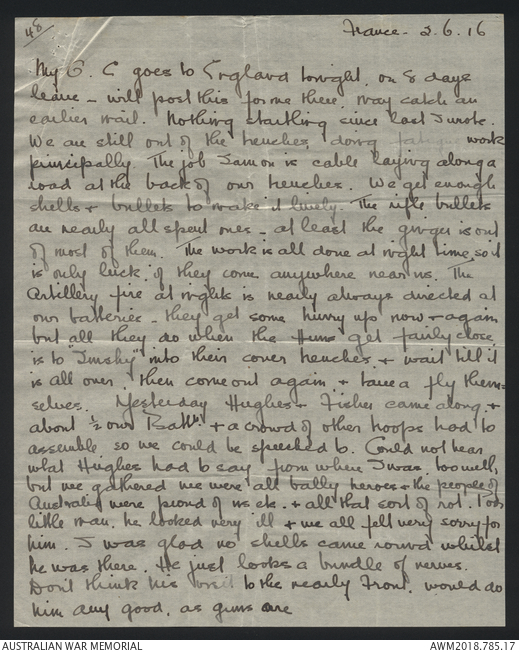 48
France - 2.6.16
My O. C goes to England tonight, on 8 days
leave - will post this for me there, may catch an
earlier mail. Nothing startling since last I wrote.
We are still out of the trenches, doing fatigue work
principally. The job I am on is cable laying along a
road at the back of our trenches. We get enough
shells & bullets to make it lively. The rifle bullets
are nearly all spent ones - at least the ginger is out
of most of them. The work is all done at night time, so it
is only luck if they come anywhere near us. The
Artillery fire at nights is nearly always directed at
our batteries - they get some hurry up now & again
but all they do when the Huns get fairly close
is to "Imshy" into their cover trenches, & wait till it
is all over, then come out again, & have a fly them=
selves. Yesterday Hughes & Fisher came along &
about ½ our Battn & a crowd of other troops had to
assemble, so we could be speeched to. Could not hear
what Hughes had to say from where I was, too well,
but we gathered we were all bally heroes & the people of
Australia were proud of us etc. & all that sort of rot. Poor
little man, he looked very ill & we all felt very sorry for
him. I was glad no shells came round whilst
he was there. He just looks a bundle of nerves.
Don't think his visit to the nearly Front, would do
him any good, as guns are
AUSTRALIAN WAR MEMORIAL
AWM2018.785.17